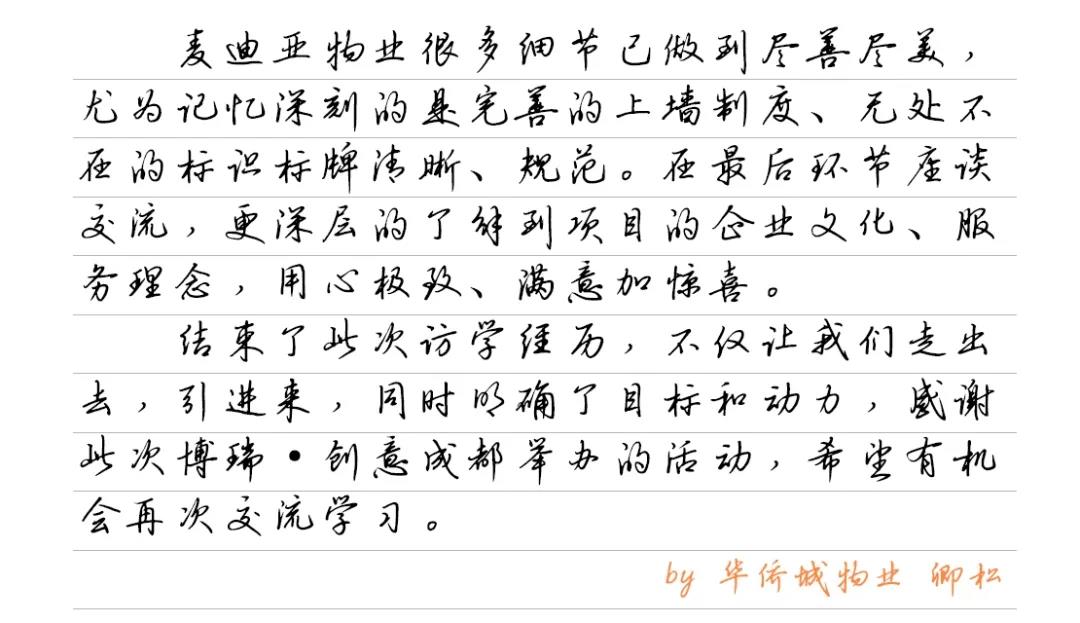 麦迪亚物业很多细节已做到尽善尽美，
尤为记忆深刻的是完善的上墙制度、无处不
在的标识标牌清晰、规范。在最后环节座谈
交流，更深层的了解到项目的企业文化、服
务理念，用心极致、满意加惊喜。
结束了此次访学经历，不仅让我们走出
去，引进来，同时明确了目标和动力，感谢
此次博瑞·创意成都举办的活动，希望有机
会再次交流学习。
by 华侨城物业 卿松